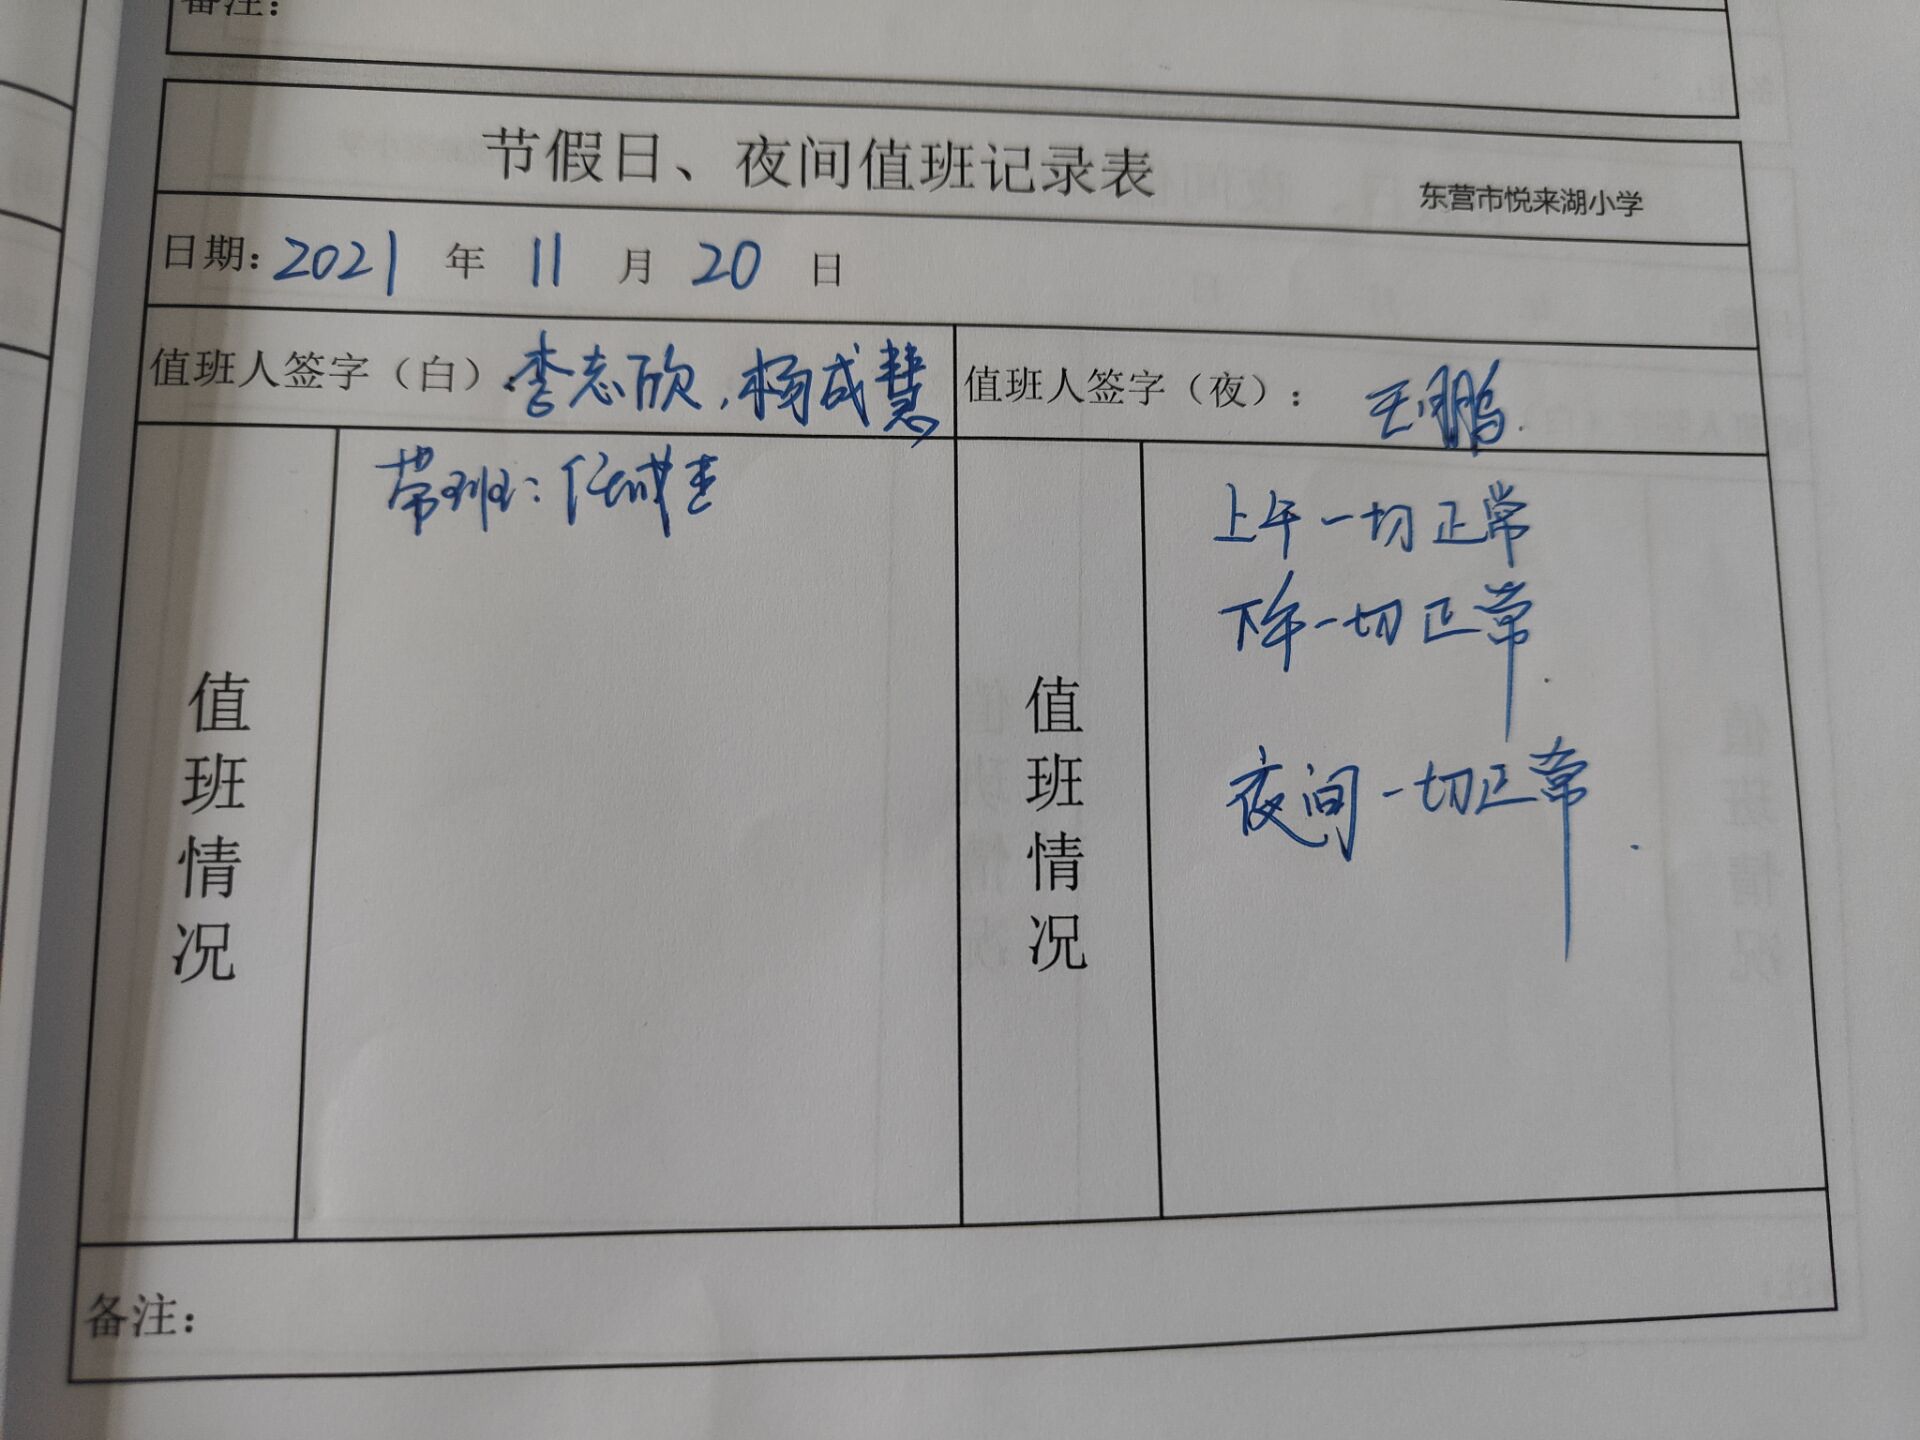 备注：
节假日、夜间值班记录表
东营市悦来湖小学
日期：2021 年 11 月 20 日
值班人签字（白） 李志欣，杨成慧
值班人签字（夜）： 王鹏
值班情况
带班：任
值班情况
上午一切正常
下午一切正常
夜间一切正常.
备注：